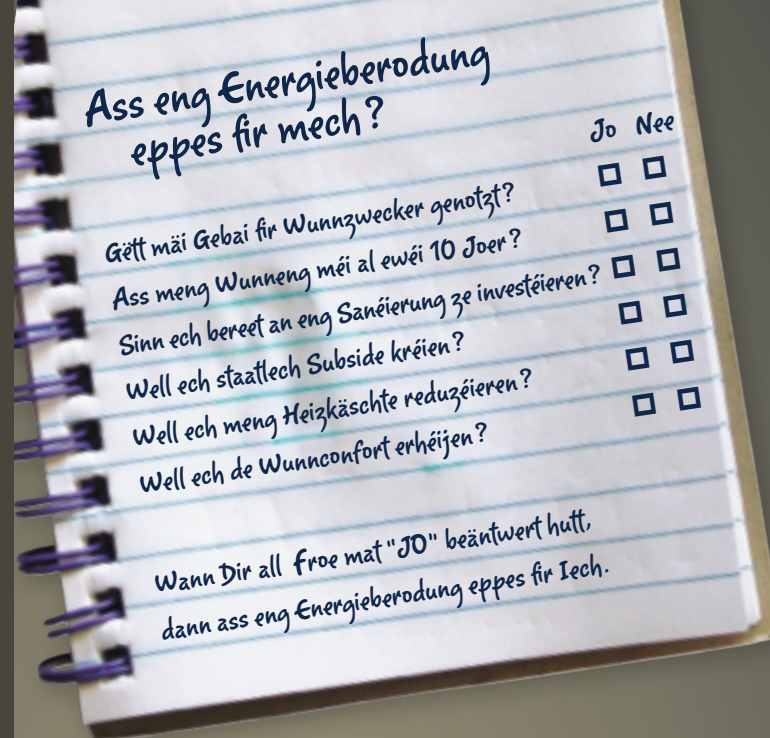 Ass eng Energieberodung
eppes fir mech?
Jo Nee
Gëtt mäi Gebai fir Wunnzwecker genotzt?
Ass meng Wunneng méi al ewéi 10 Joer?
Sinn ech bereet an eng Sanéierung ze investéieren?
Well ech staatlech Subside kréien?
Well ech meng Heizkäschte reduzéieren?
Well ech de Wunnconfort erhéijen?
Wann Dir all Froe mat "JO" beäntwert hutt,
dann ass eng Energieberodung eppes fir Iech.